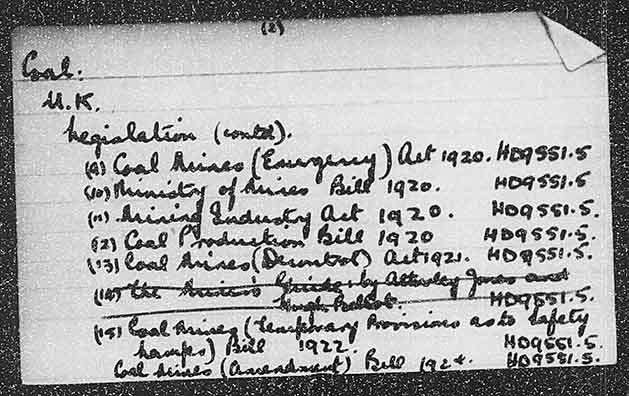 (2)
Coal.
U.K.
Legislation (contd).
(9) Coal Mines (Emergency) Act 1920. HD9551.5
(10) Ministry of Mines Bill 1920. HD9551.5
(11) Mining Industry Act 1920. HD9551.5.
(12) Coal Production Bill 1920 HD9551.5.
(13) Coal Mines (Decontrol) Act 1921. HD9551.5.
(14) The Miner's Guide by Atherley Jones and
Hugh HD9551.5.
(15) Coal Mines (Temporary Provisions as to Safety
Lamps) Bill 1922. HD9551.5.
Coal Mines (Amendment) Bill HD9551.5.